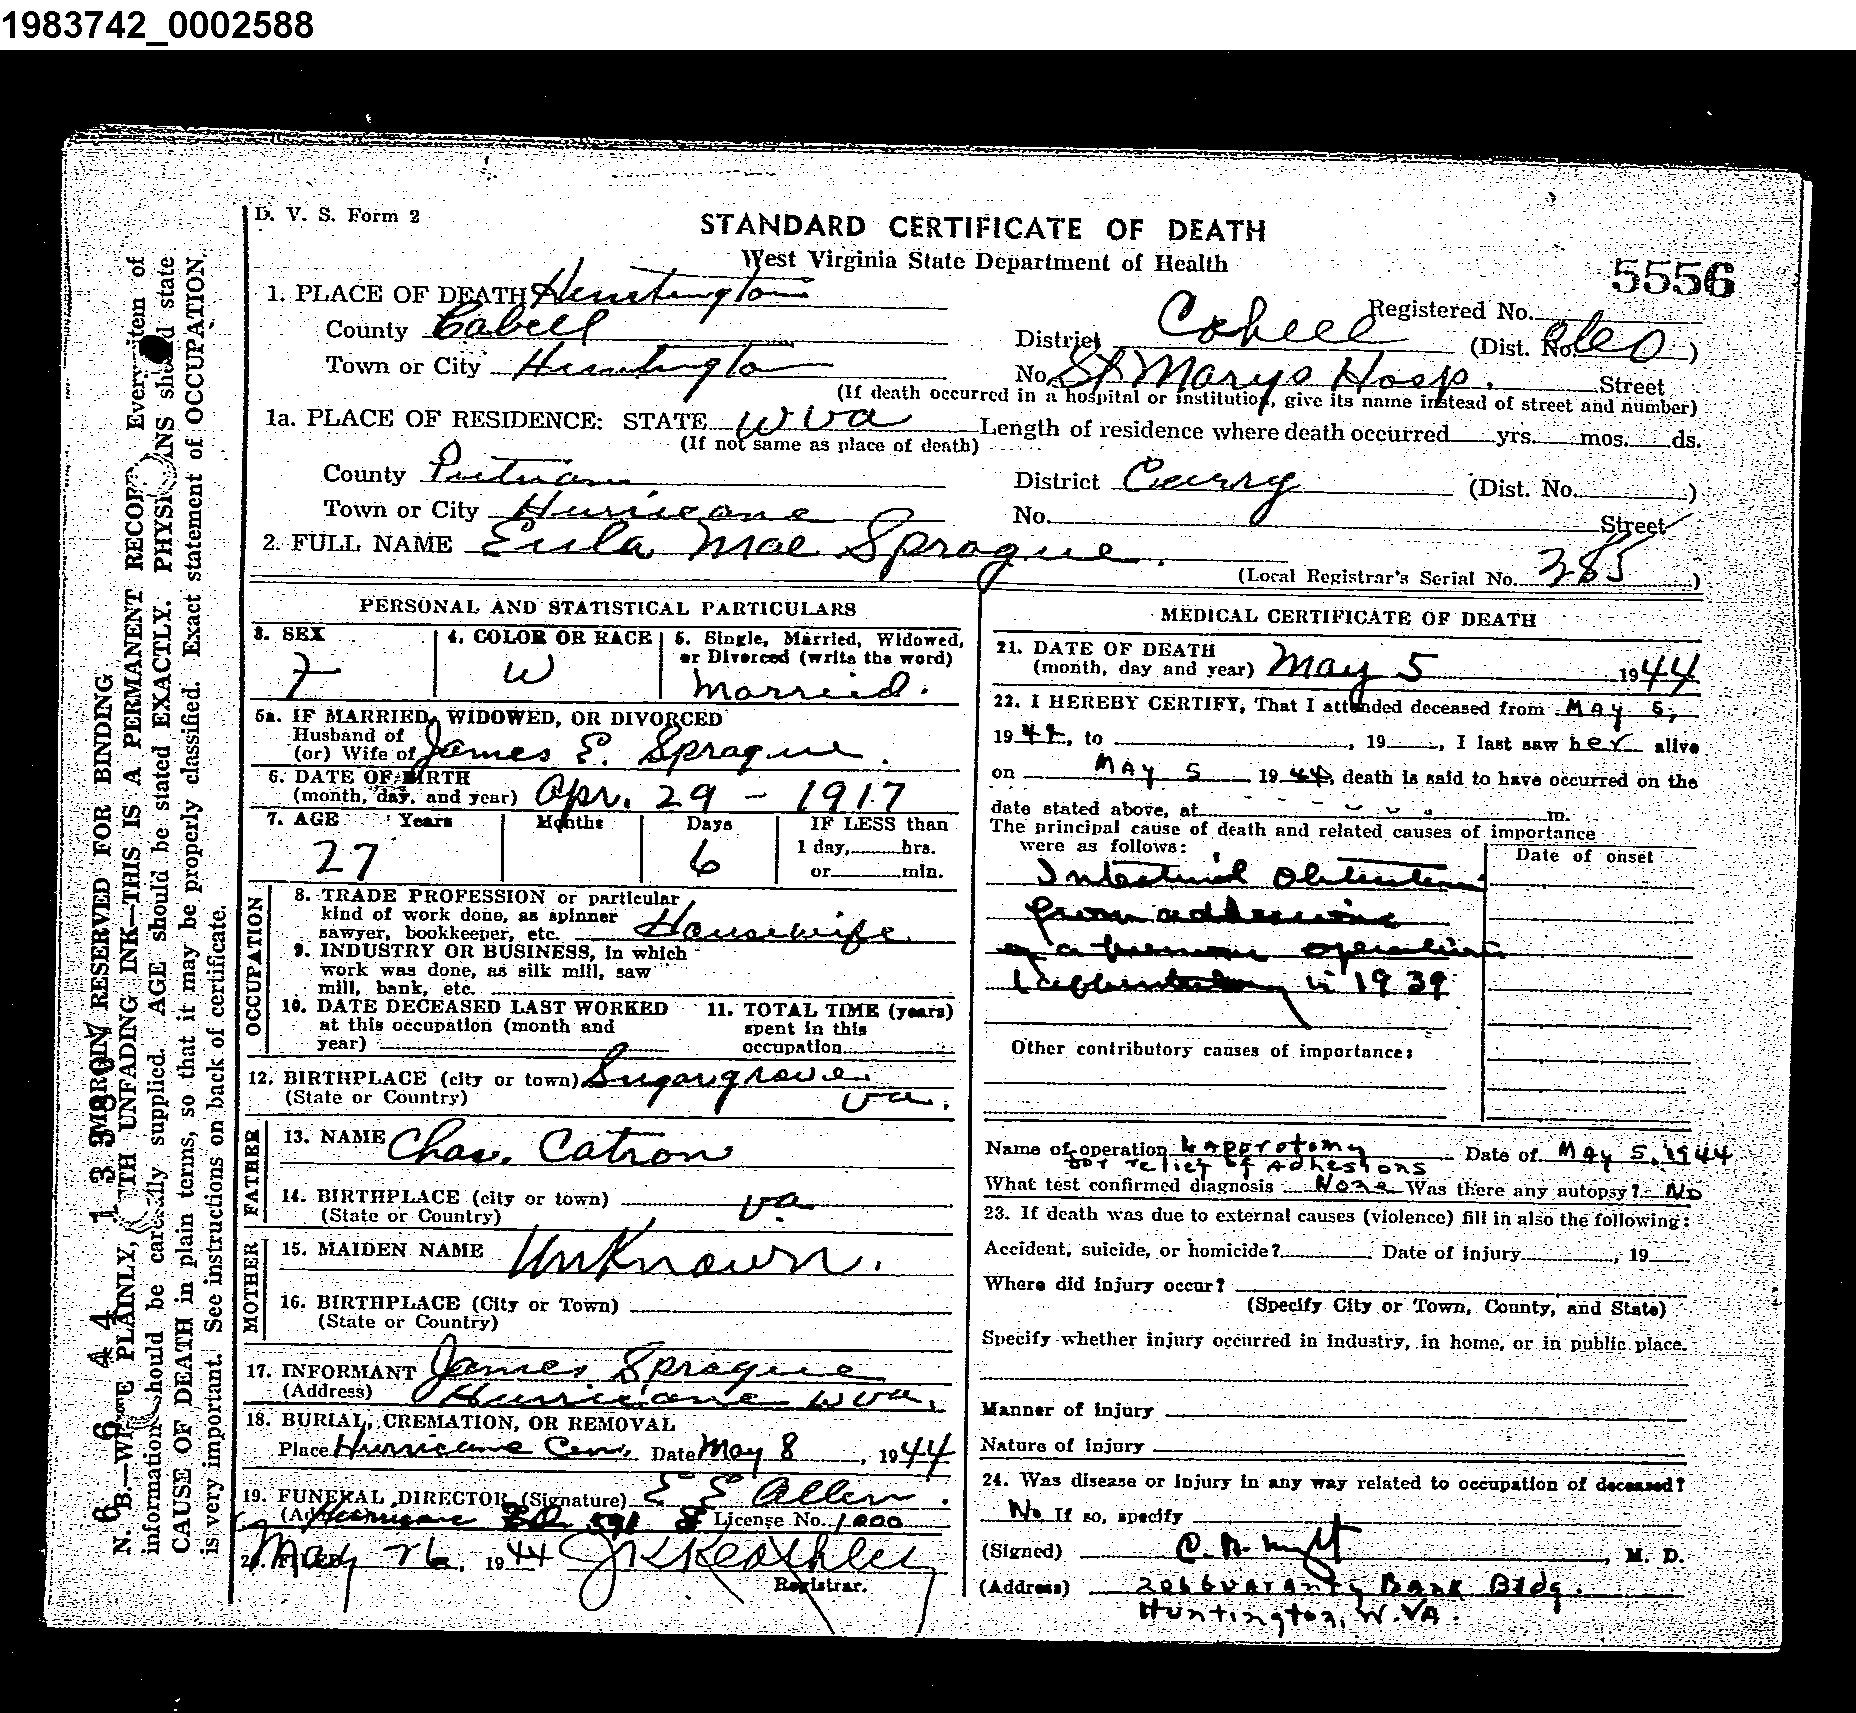 1983742_0002588
D. V. S. Form 2
STANDARD CERTIFICATE OF DEATH
West Virginia State Department of Health
5556
1. PLACE OF DEATH Huntington
Registered No.
County Cabell
District Cabell (Dist. No. )
Town or City Huntington
No. St Marys Hosp. Street
(If death occurred in a hospital or institution, give its name instead of street and number)
1a. PLACE OF RESIDENCE: STATE W Va
Length of residence where death occurred yrs. mos. ds.
(If not same as place of death)
County Putnam
District Curry (Dist. No. )
Town or City Hurricane
No. Street
2. FULL NAME Eula Mae Sprague.
(Local Registrar's Serial No. 285)
PERSONAL AND STATISTICAL PARTICULARS
3. SEX
F
4. COLOR OR RACE
W
5. Single, Married, Widowed,
or Divorced (write the word)
Married.
5a. IF MARRIED, WIDOWED, OR DIVORCED
Husband of
(or) Wife of James E. Sprague.
6. DATE OF BIRTH
(month, day, and year) Apr. 29 - 1917
7. AGE Years Months Days IF LESS than
27 6 1 day, hrs.
or min.
OCCUPATION
8. TRADE PROFESSION or particular
kind of work done, as spinner
sawyer, bookkeeper, etc. Housewife
9. INDUSTRY OR BUSINESS, in which
work was done, as silk mill, saw
mill, bank, etc.
10. DATE DECEASED LAST WORKED
at this occupation (month and
year)
11. TOTAL TIME (years)
spent in this
occupation
12. BIRTHPLACE (city or town) Sugargrove
(State or Country) Va.
FATHER
13. NAME Chas. Catron
14. BIRTHPLACE (city or town) Va
(State or Country)
MOTHER
15. MAIDEN NAME Unknown.
16. BIRTHPLACE (City or Town)
(State or Country)
17. INFORMANT James Sprague
(Address) Hurricane W Va.
18. BURIAL, CREMATION, OR REMOVAL
Place Hurricane Cem. Date May 8, 1944
19. FUNERAL DIRECTOR (Signature) E E Allen.
Hurricane 591 License No. 1000
May 26, 1944
Registrar.
MEDICAL CERTIFICATE OF DEATH
21. DATE OF DEATH
(month, day and year) May 5 1944
22. I HEREBY CERTIFY, That I attended deceased from May 5,
1944, to , 19 , I last saw her alive
on May 5 1944, death is said to have occurred on the
date stated above, at m.
The principal cause of death and related causes of importance
were as follows:
Date of onset
Intestinal Obstruction
from adhesions
of a previous operation
in 1939
Other contributory causes of importance:
Name of operation Laporotomy Date of May 5, 1944
for relief of Adhesions
What test confirmed diagnosis None Was there any autopsy? No
23. If death was due to external causes (violence) fill in also the following:
Accident, suicide, or homicide? Date of injury , 19
Where did injury occur?
(Specify City or Town, County, and State)
Specify whether injury occurred in industry, in home, or in public place.
Manner of injury
Nature of injury
24. Was disease or injury in any way related to occupation of deceased?
No If so, specify
(Signed) , M. D.
(Address) 206 Guaranty Bank Bldg.
Huntington, W. VA.
MARGIN RESERVED FOR BINDING
N. B.—WRITE PLAINLY, WITH UNFADING INK—THIS IS A PERMANENT RECORD. Every item of
information should be carefully supplied. AGE should be stated EXACTLY. PHYSICIANS should state
CAUSE OF DEATH in plain terms, so that it may be properly classified. Exact statement of OCCUPATION
is very important. See instructions on back of certificate.